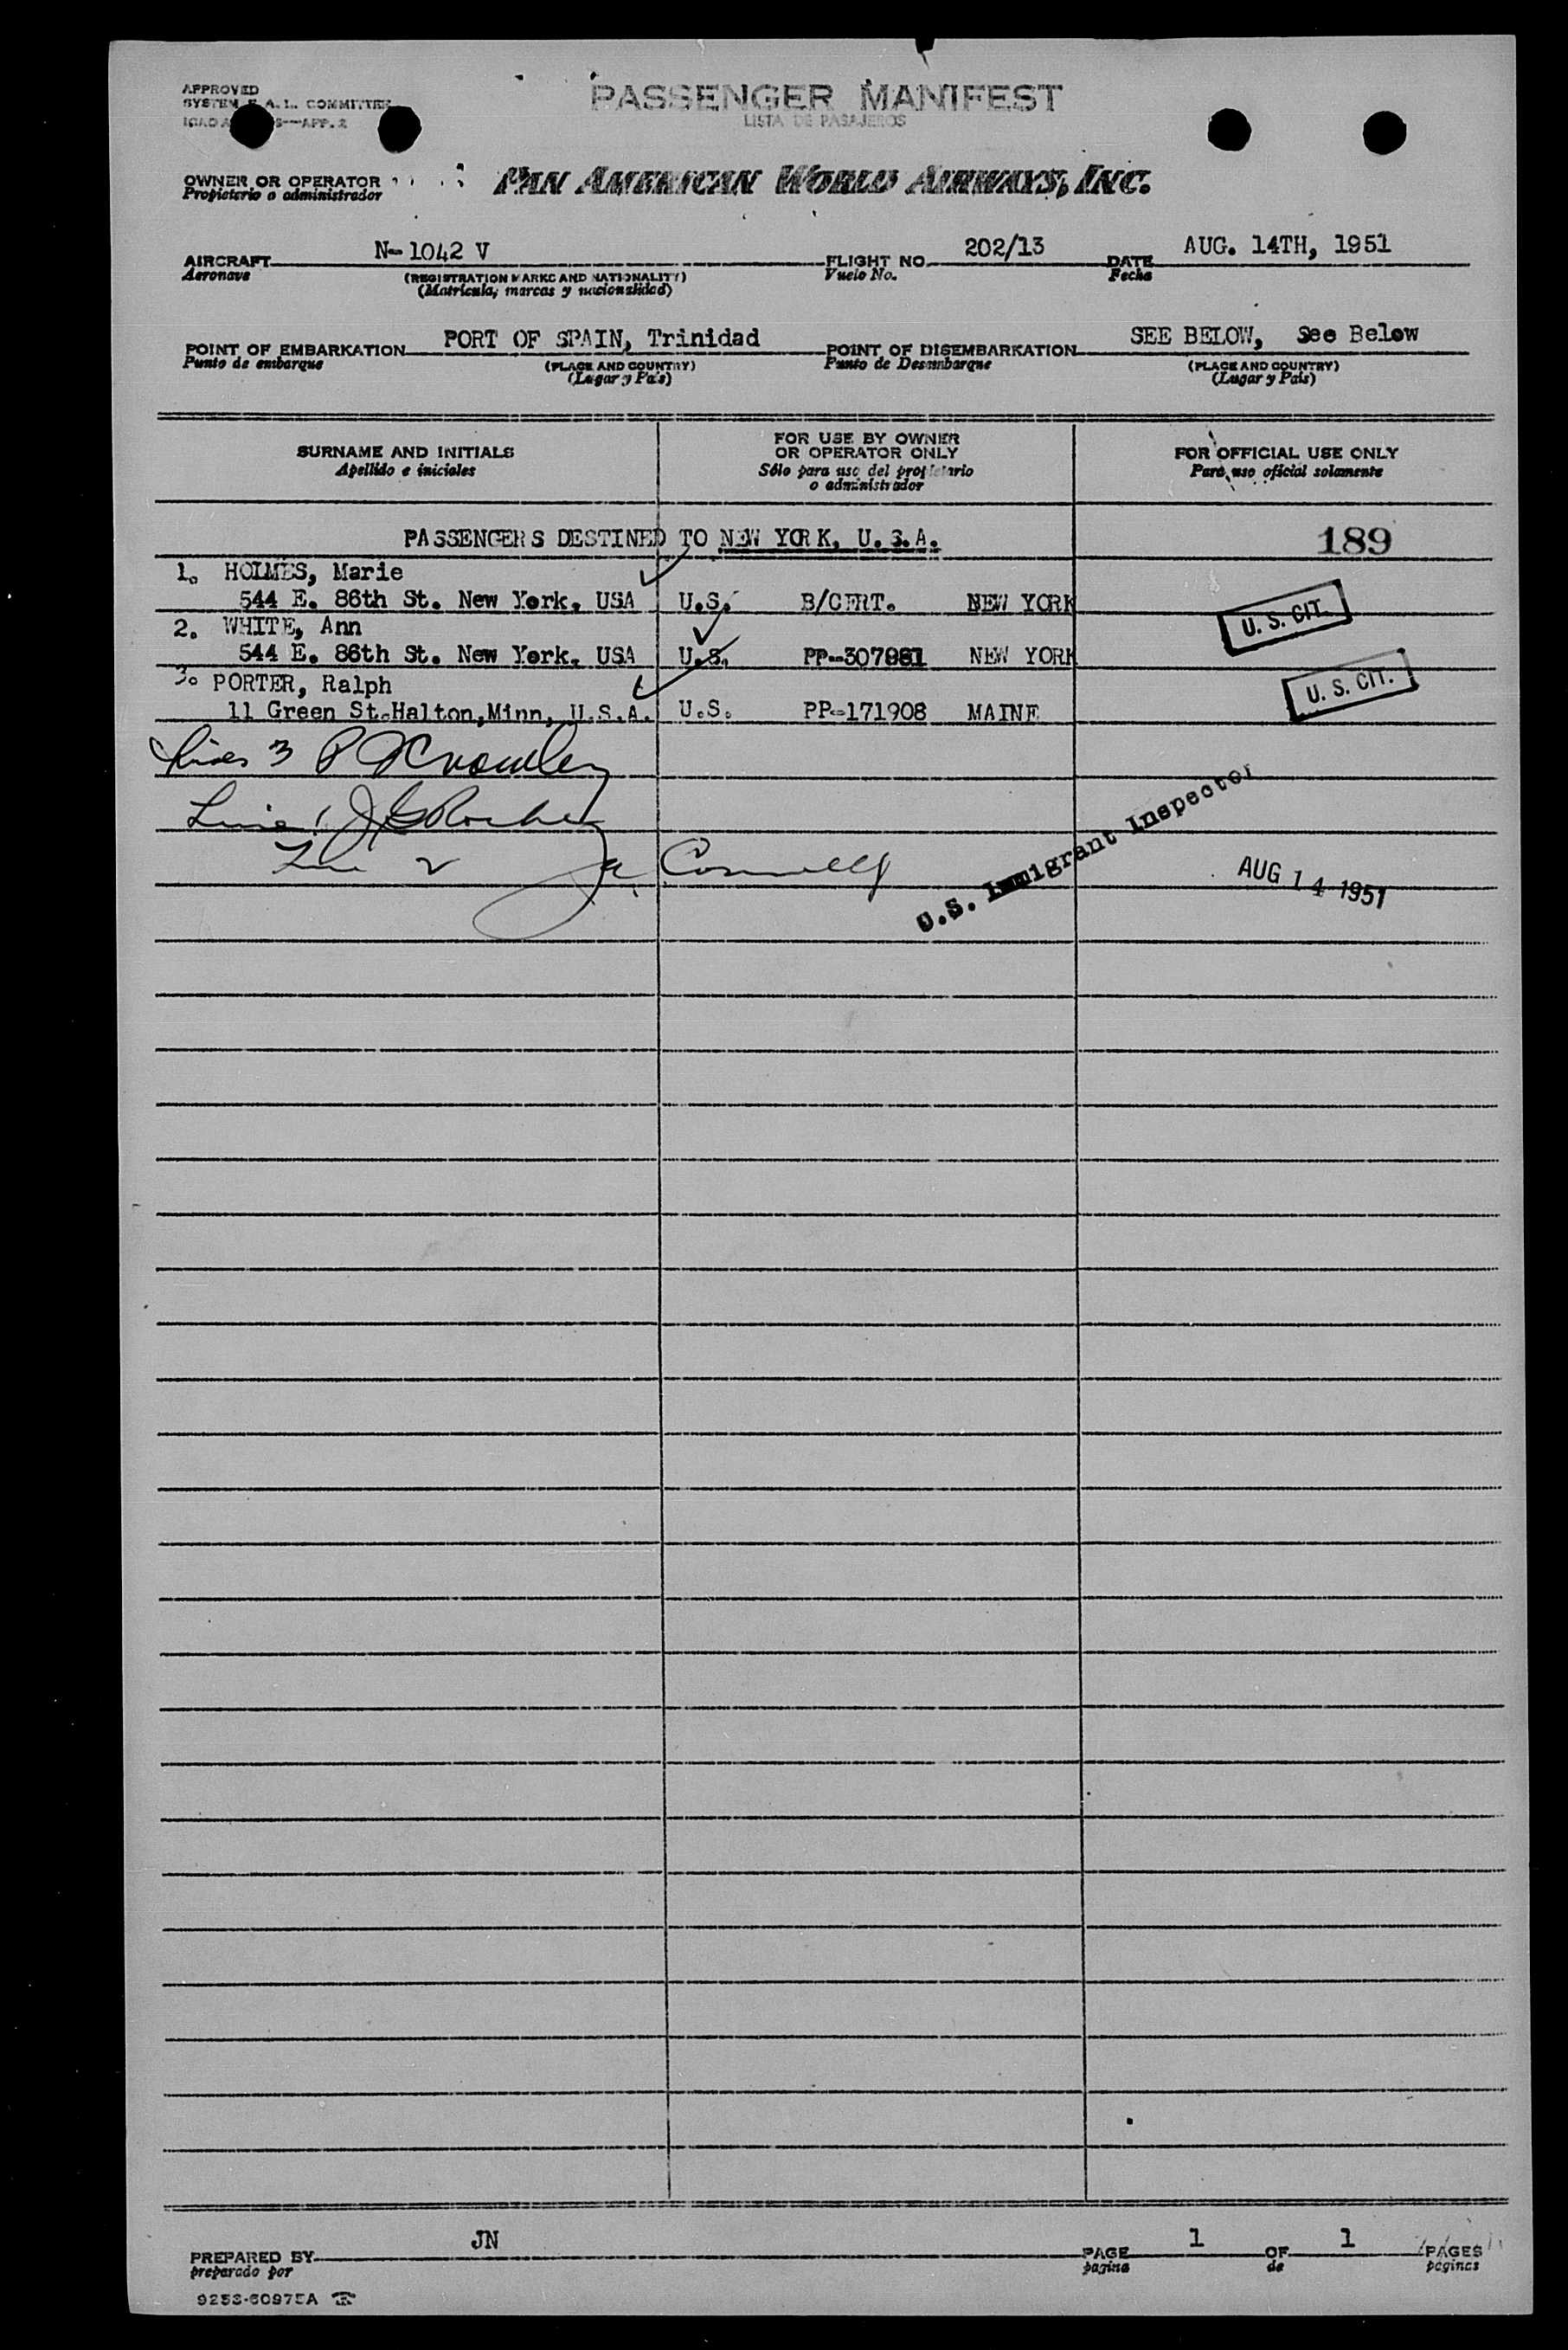 APPROVED
SYSTEM F. A. L. COMMITTEE
APP. 2
PASSENGER MANIFEST
LISTA DE PASAJEROS
OWNER OR OPERATOR
Propietario o administrador
PAN AMERICAN WORLD AIRWAYS, INC.
AIRCRAFT N-1042 V FLIGHT NO. 202/13 DATE AUG. 14TH, 1951
Aeronave (REGISTRATION MARKS AND NATIONALITY) Vuelo No. Fecha
(Matrícula, marcas y nacionalidad)
POINT OF EMBARKATION PORT OF SPAIN, Trinidad POINT OF DISEMBARKATION SEE BELOW, See Below
Punto de embarque (PLACE AND COUNTRY) Punto de Desembarque (PLACE AND COUNTRY)
(Lugar y País) (Lugar y País)
SURNAME AND INITIALS
Apellido e iniciales
FOR USE BY OWNER
OR OPERATOR ONLY
Sólo para uso del propietario
o administrador
FOR OFFICIAL USE ONLY
Para uso oficial solamente
PASSENGERS DESTINED TO NEW YORK, U.S.A. 189
1. HOLMES, Marie
544 E. 86th St. New York, USA U.S. B/CERT. NEW YORK U. S. CIT.
2. WHITE, Ann
544 E. 86th St. New York, USA U.S. PP-307981 NEW YORK
3. PORTER, Ralph U. S. CIT.
11 Green St.Halton,Minn, U.S.A. U.S. PP-171908 MAINE
Lines 3
Line 1
Line 2
U.S. Immigrant Inspector
AUG 14 1951
PREPARED BY JN PAGE 1 OF 1 PAGES
preparado por pagina de paginas
9253-60975A